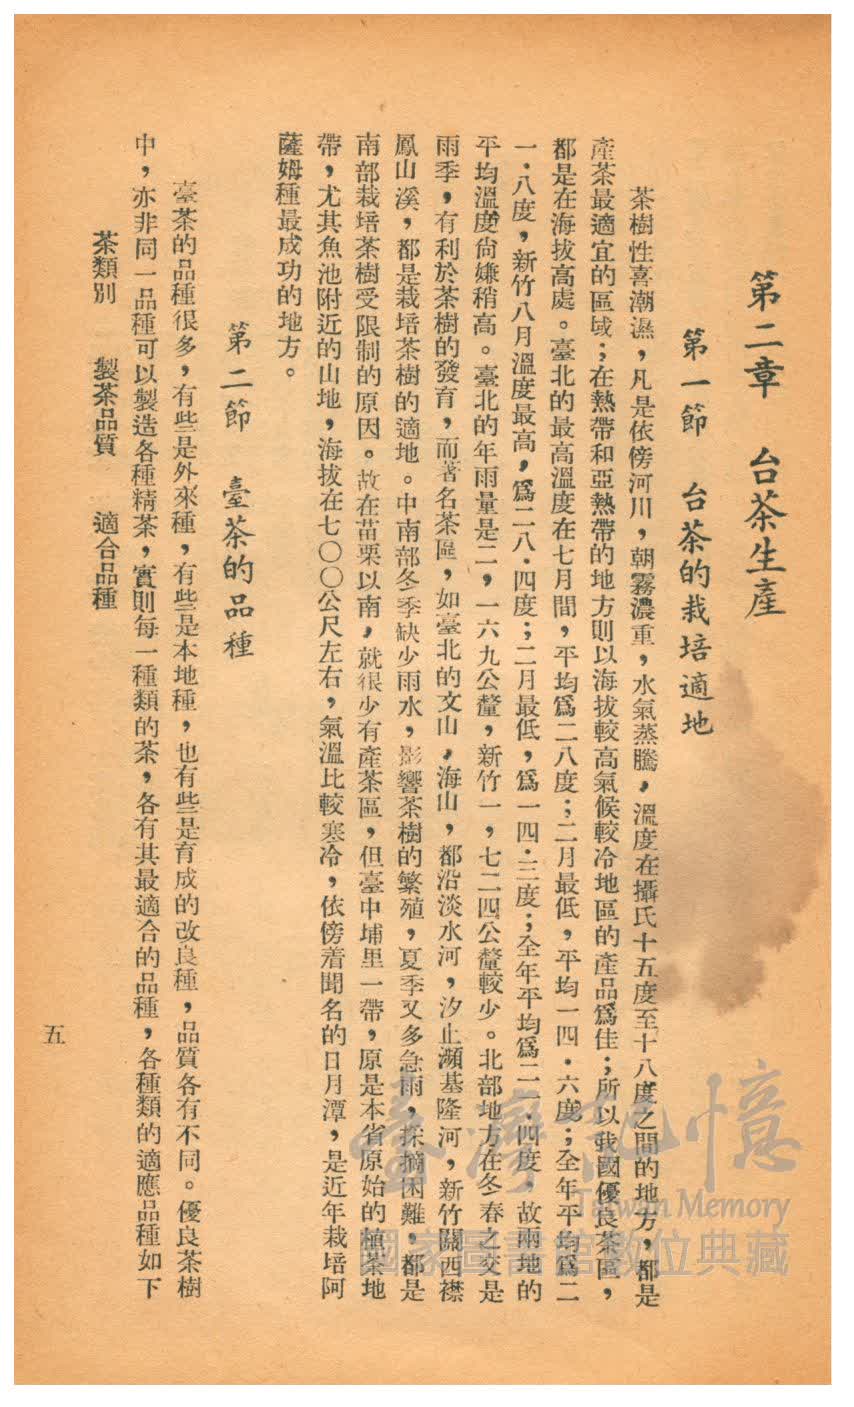 第二章　台茶生產
第一節　台茶的栽培適地
茶樹性喜潮濕，凡是依傍河川，朝霧濃重，水氣蒸騰，溫度在攝氏十五度至十八度之間的地方，都是
產茶最適宜的區域；在熱帶和亞熱帶的地方則以海拔較高氣候較冷地區的產品爲佳；所以我國優良茶區，
都是在海拔高處。臺北的最高溫度在七月間，平均爲二八度；二月最低，平均一四．六度；全年平均爲二
一．八度，新竹八月溫度最高，爲二八．四度；二月最低，爲一四．三度；全年平均爲二一．四度。故兩地的
平均溫度尙嫌稍高。臺北的年雨量是二，一六九公釐，新竹一，七二四公釐較少。北部地方在冬春之交是
雨季，有利於茶樹的發育，而著名茶區，如臺北的文山，海山，都沿淡水河，汐止瀕基隆河，新竹關西襟
鳳山溪，都是栽培茶樹的適地。中南部冬季缺少雨水，影響茶樹的繁殖，夏季又多急雨，採摘困難，都是
南部栽培茶樹受限制的原因。故在苗栗以南，就很少有產茶區，但臺中埔里一帶，原是本省原始的植茶地
帶，尤其魚池附近的山地，海拔在七〇〇公尺左右，氣溫比較寒冷，依傍着聞名的日月潭，是近年栽培阿
薩姆種最成功的地方。
第二節　臺茶的品種
臺茶的品種很多，有些是外來種，有些是本地種，也有些是育成的改良種，品質各有不同。優良茶樹
中，亦非同一品種可以製造各種精茶，實則每一種類的茶，各有其最適合的品種，各種類的適應品種如下
茶類別　製茶品質　適合品種
五
臺灣記憶
Taiwan Memory
國家圖書館數位典藏